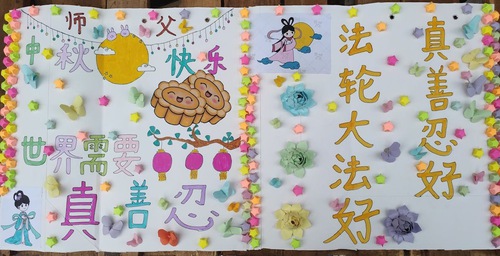 师父
中秋快乐
世界需要
真善忍
法轮大法好
真善忍好